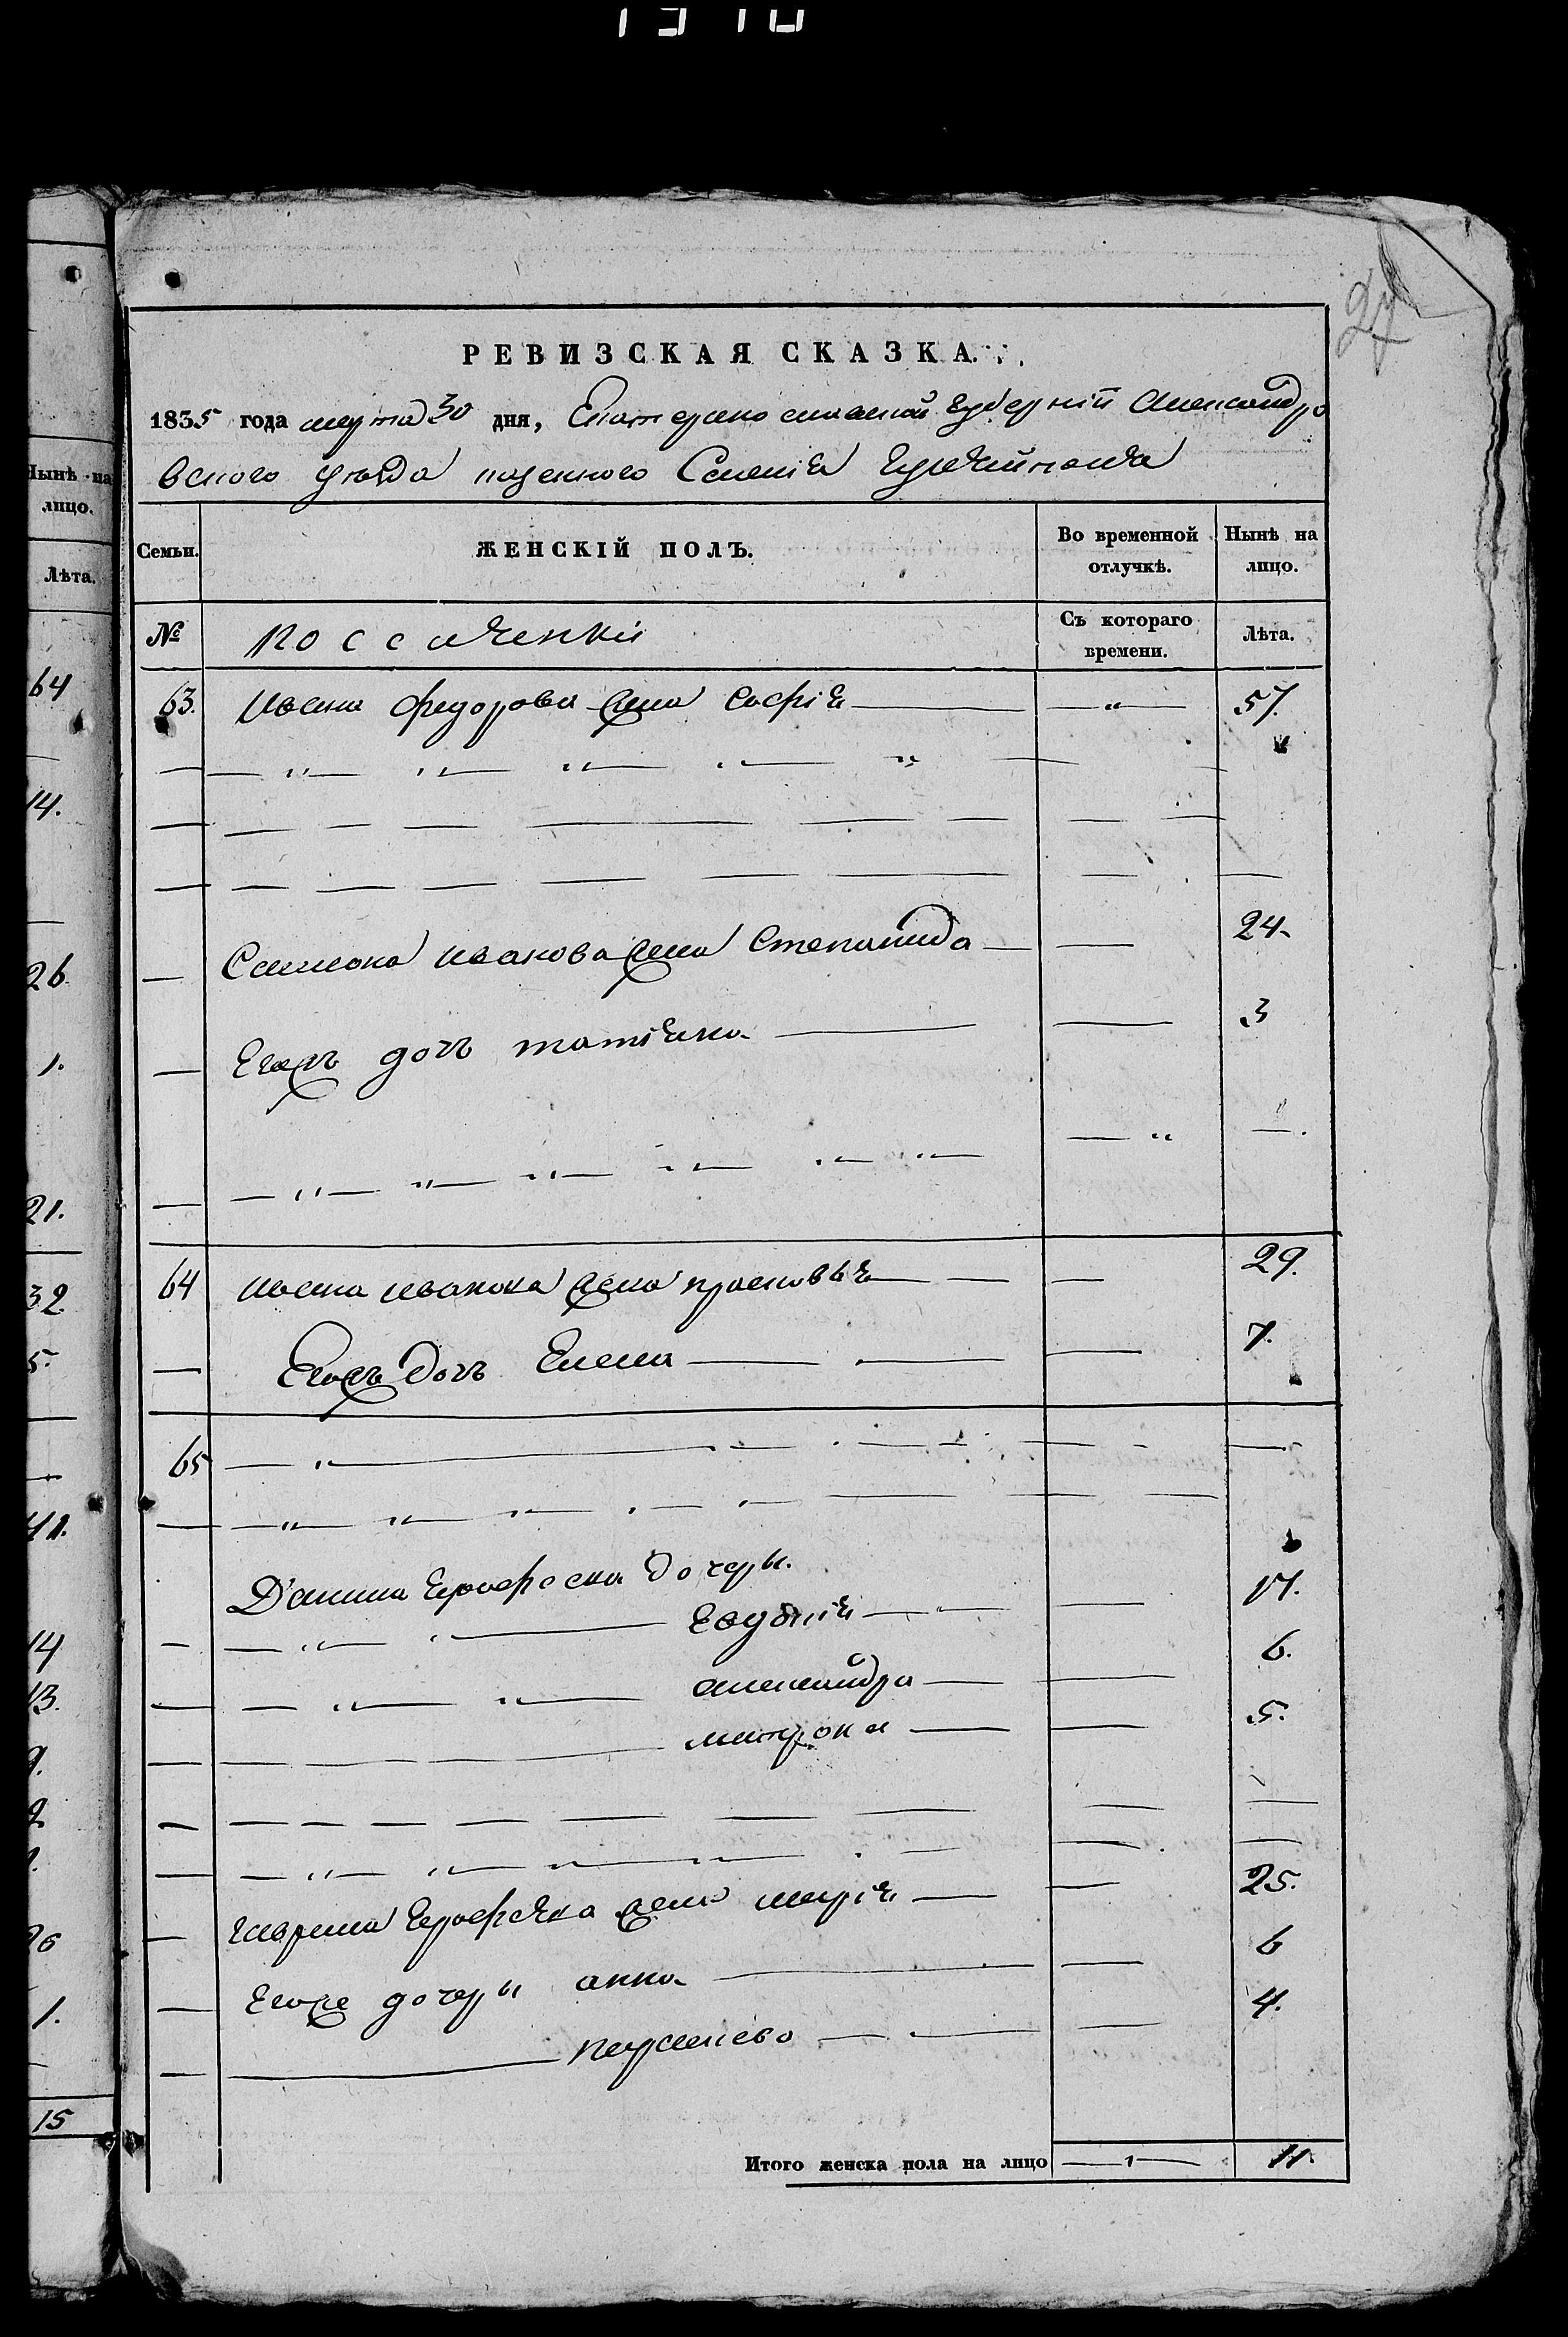 27
РЕВИЗСКАЯ СКАЗКА.
1835 года марта 30 дня, Екатеринославской Губернiи Александро
вского уезда казенного Селенiя
Семьи.
ЖЕНСКIЙ ПОЛЪ.
Во временной отлучкѣ.
Нынѣ на лицо.
№
Съ котораго времени.
Лѣта.
63. Ивана Федорова жена Софiя — — 57.
Семиона Иванова жена Степанида — — 24.
Егожъ дочь татiяна — — 3
64 Ивана иванова жена прасковья — — 29.
Егожъ дочь Елена — — 7.
65
Данила Ерофеева дочери.
Евдокiя — — 17.
александра — — 6.
матрона — — 5.
гаврила Ерофеева жена марiя — — 25.
Егоже дочери анна — — 6
— — 4.
Итого женска пола на лицо — 11.
Нынѣ на лицо.
Лѣта.
64
14.
26
1.
21.
32
5.
41.
14
13.
9.
1.
15